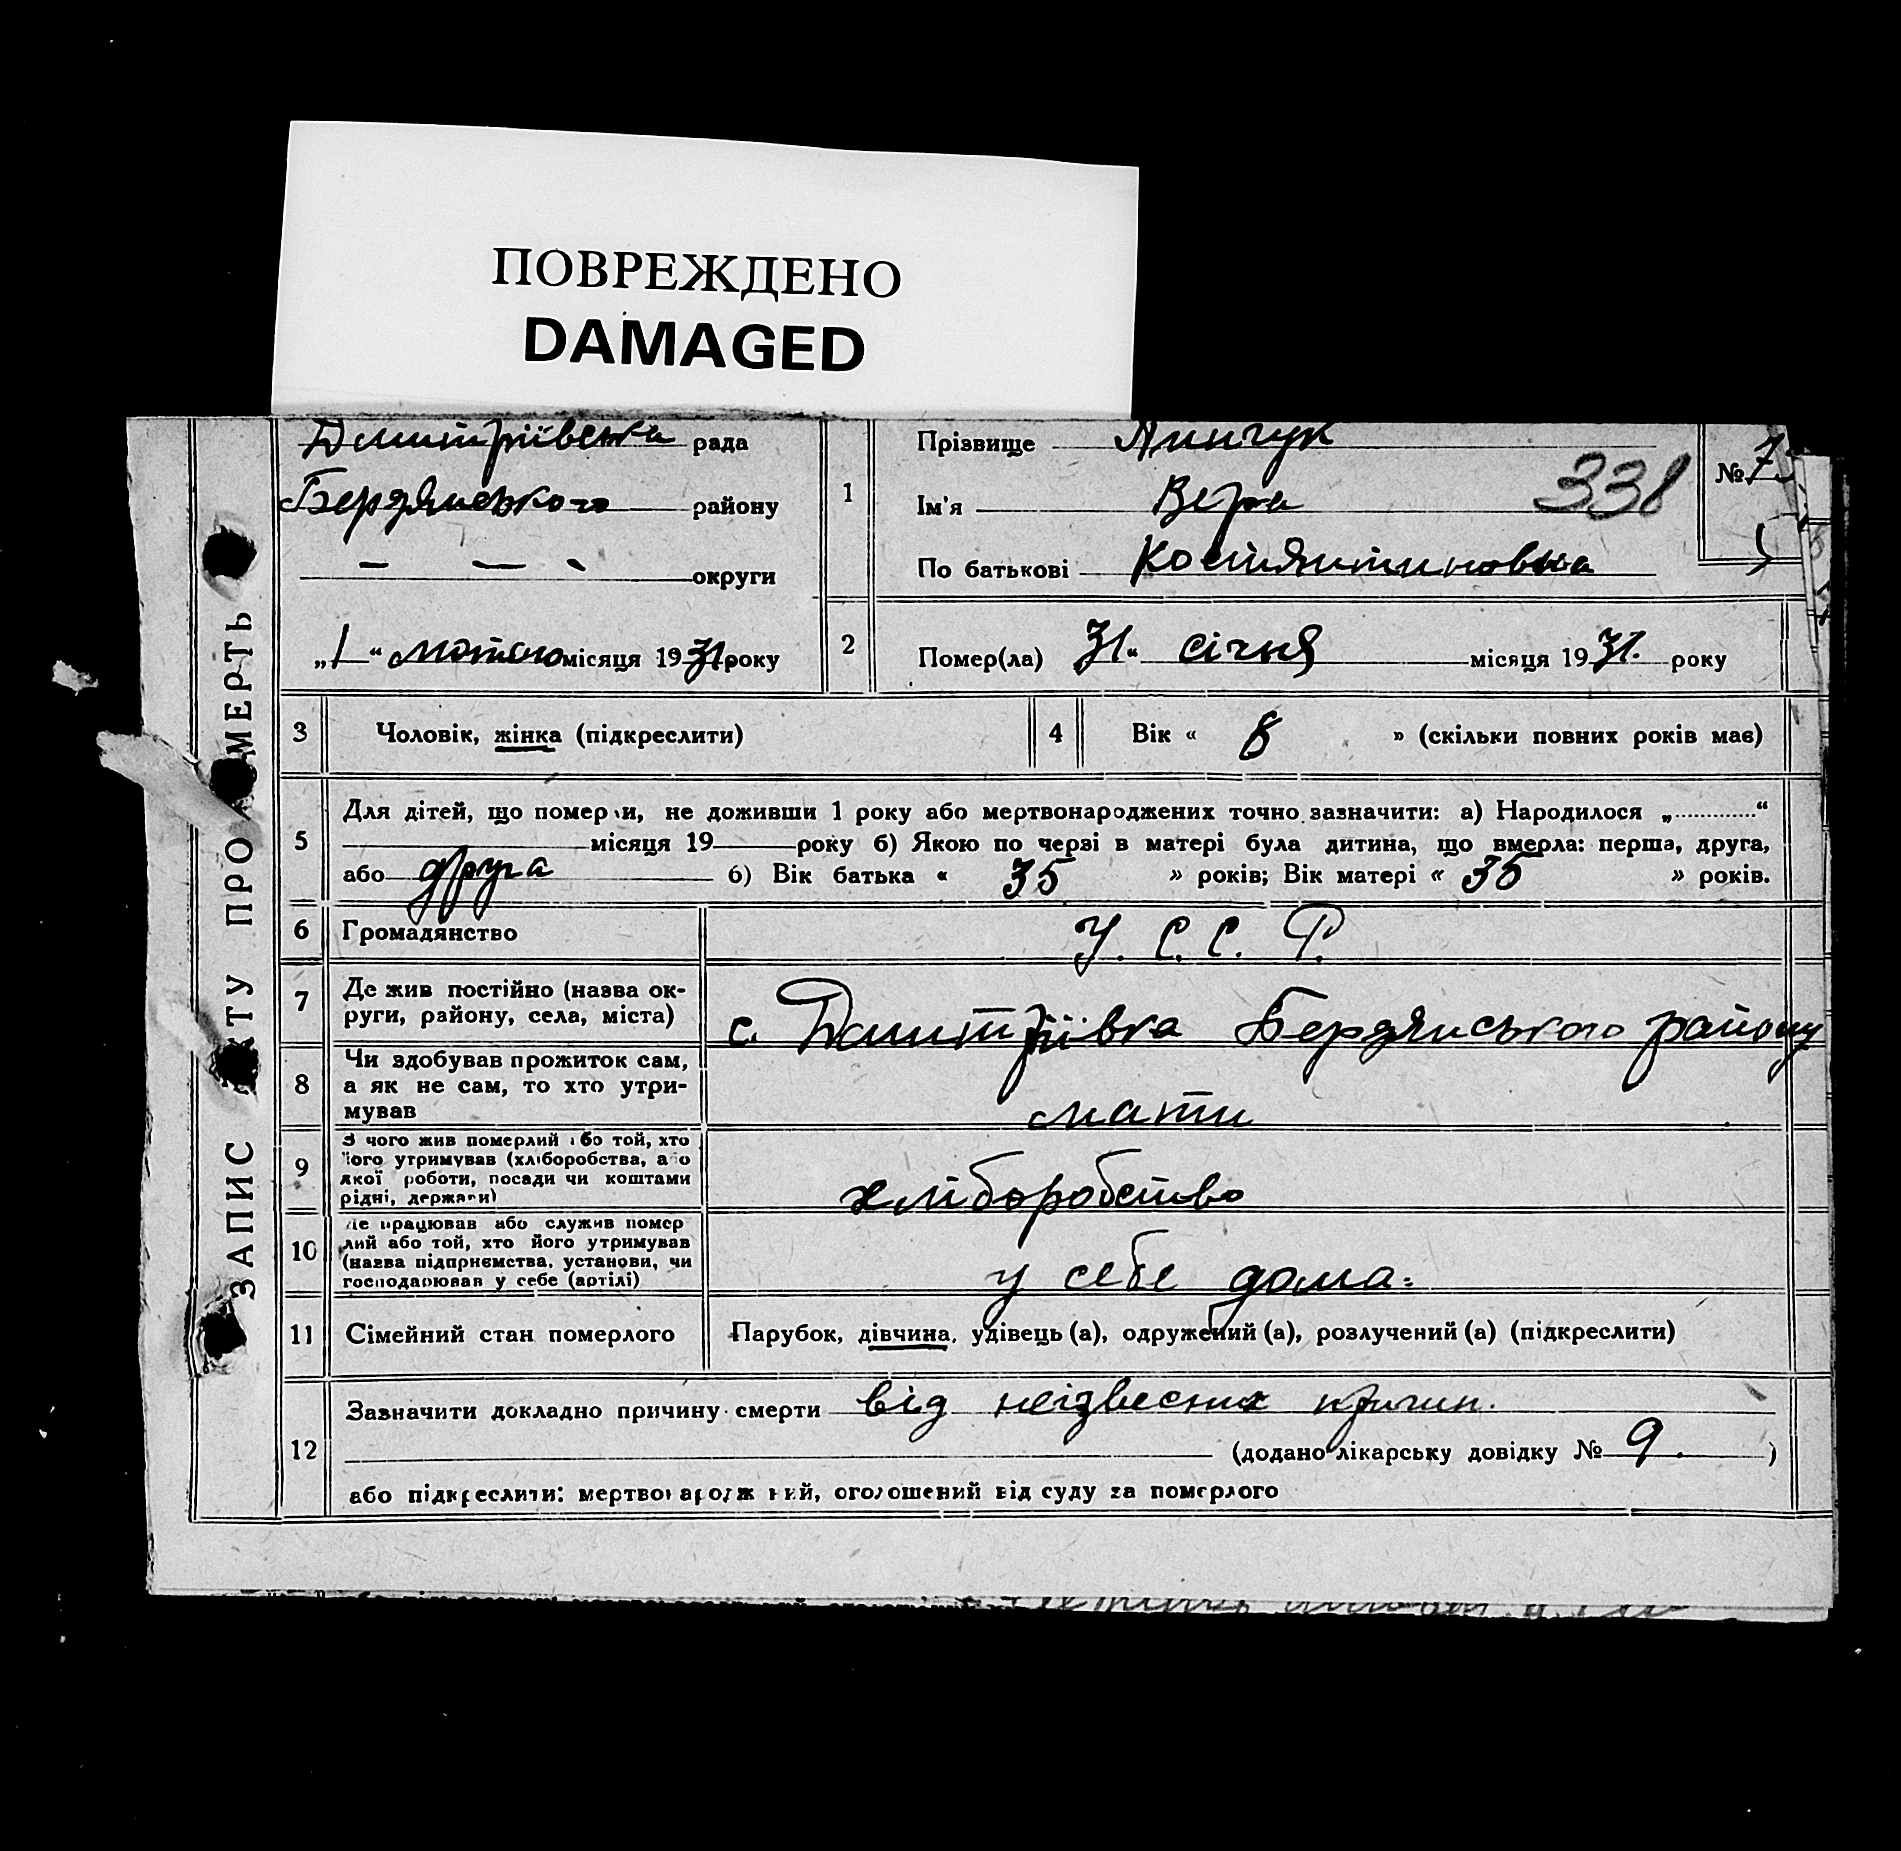 ПОВРЕЖДЕНО
DAMAGED
ЗАПИС АКТУ ПРО СМЕРТЬ
Дмитріївська рада
Бердянського району
— — - округи
„1“ лютого місяця 1931 року
1
Прізвище Линчук
Ім'я Вера
338
По батькові Костянтиновна
№ 7
2
Помер(ла) 31“ січня місяця 1931. року
3 Чоловік, жінка (підкреслити)
4 Вік « 8 » (скільки повних років має)
5
Для дітей, що померли, не доживши 1 року або мертвонароджених точно зазначити: а) Народилося „.............“
місяця 19 року б) Якою по черзі в матері була дитина, що вмерла: перша, друга,
або друга б) Вік батька « 35 » років; Вік матері « 35 » років.
6 Громадянство У. С. С. Р.
7 Де жив постійно (назва ок-
руги, району, села, міста) с. Дмитріївка Бердянського району
8 Чи здобував прожиток сам,
а як не сам, то хто утри-
мував мати
9 З чого жив померлий або той, хто
його утримував (хліборобства, або
якої роботи, посади чи коштами
рідні, держави) хліборобство
10 Де працював або служив помер
лий або той, хто його утримував
(назва підприємства, установи, чи
господарював у себе (артілі) у себе дома.
11 Сімейний стан померлого Парубок, дівчина, удівець (а), одружений (а), розлучений (а) (підкреслити)
12
Зазначити докладно причину смерти від неізвесних причин.
(додано лікарську довідку № 9. )
або підкреслити: мертвонароджений, оголошений від суду за померлого